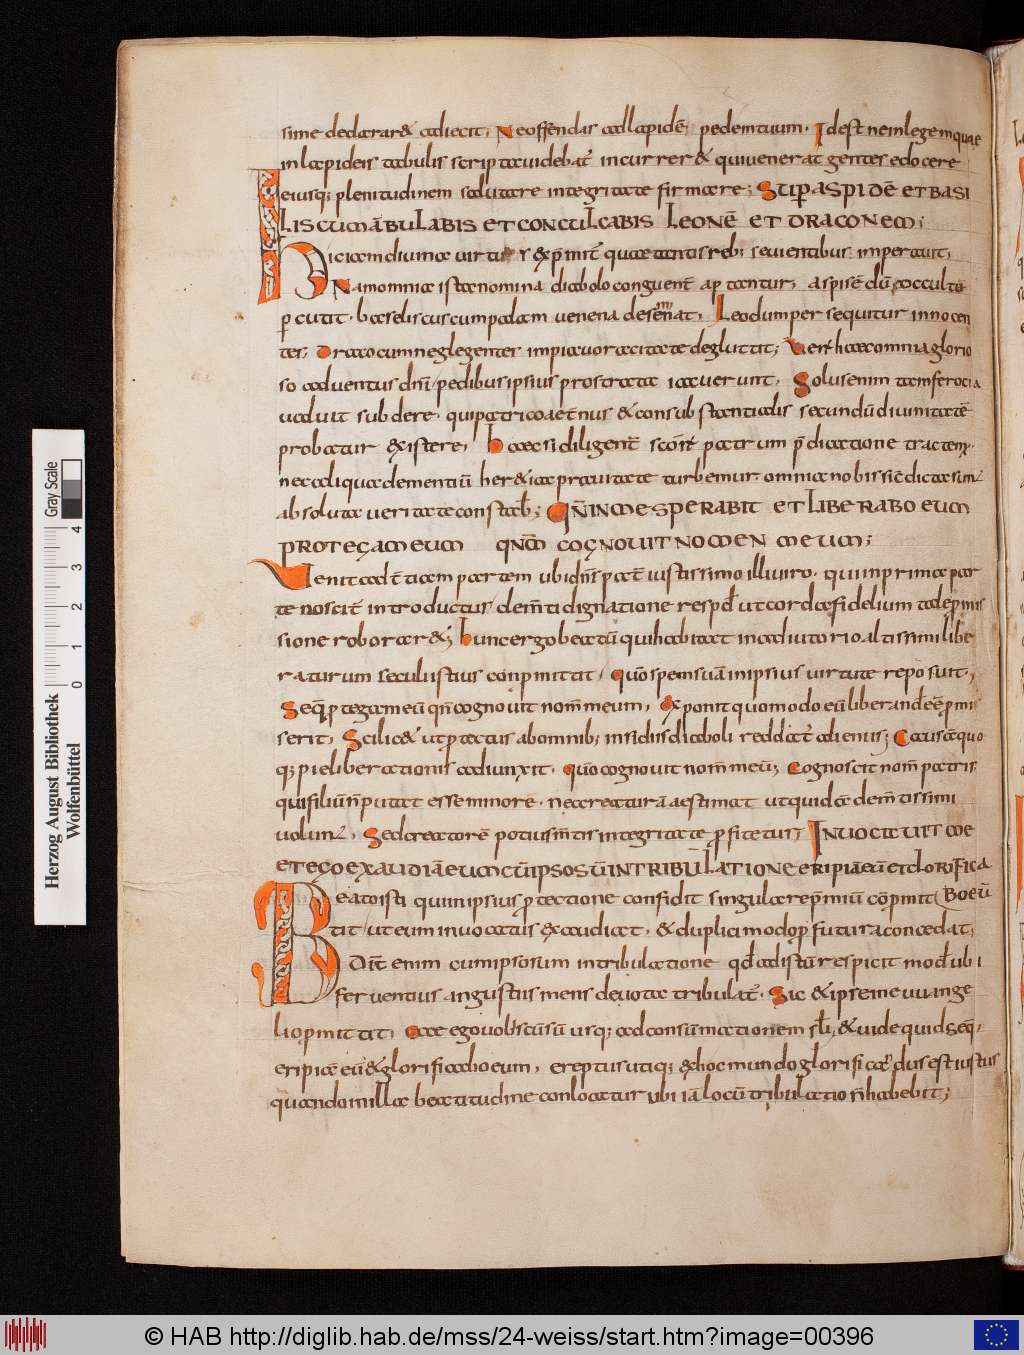 sime declararet adiecit, Ne offendas ad lapidē pedem tuum. Id est ne in legem quae
in lapideis tabulis scripta videbat̄ incurreret & qui venerat gentes edocere
eiusq; plenitudinem salutare integritate firmare; SUP ASPIDĒ ET BASI
LISCUM ĀBULABIS ET CONCULCABIS LEONĒ ET DRACONEM;
Hic iam divina virtus exp̄mit̄ quae tantis reb; sevientibus imperavit,
Nam omnia ista nomina diabolo congruent̄ aptantur, aspis ē dū occulte
percutit. basiliscus cum palam venena desēmnat, Leo dum persequitur innocen
tes; Draco cum neglegentes impia voracitate degluttit; Verū haec omnia glorio
so adventu dn̄i pedibus ipsius prostrata iacuerunt. Solus enim tam ferocia
valuit subdere. qui patri coaet̄nus & consubstantialis secundū divinitatē
probatur existere, haec si diligent̄ sc̄orū patrum p̄dicatione tractem;
nec aliqua dementiū heretica pravitate turbemur omnia nobis sic dicta sunt
absoluta veritate constab̄; QM̄ IN ME SPERABIT ET LIBERABO EUM
PROTEGAM EUM QNM̄ COGNOVIT NOMEN MEUM;
Venit ad t̄tiam partem ubi dn̄s pat̄ iustissimo illi viro. qui in prima par
te noscit̄ introductus clem̄ti dignatione respd̄ ut corda fidelium tali p̄mis
sione roboraret; hunc ergo beatū qui habitat in adiutorio altissimi libe
raturum se cului istius conp̄mittit, quō spem suā in ipsius virtute reposuit,
Seq̄ protegam eū qm̄ cognovit nom̄ meum, Exponit quomodo eū liberandū ēe p̄mi
serit, Scilic& ut protectus ab omnib; insidiis diaboli reddat̄ alienus; Causā quo
q; piae liberationis adiunxit. quō cognovit nom̄ meū; Cognoscit nom̄ patris
qui filiū n̄ putat esse minore. nec creaturā aestimat ut quidā dem̄tissimi
volunt, Sed creatorē potius m̄tis integritate profitetur; INVOCAVIT ME
ET EGO EXAUDIĀ EUM CŪ IPSO SŪ IN TRIBULATIONE ERIPIĀ EŪ ET GLORIFICA
Beato isti qui in ipsius protectione confidit singulare p̄miū cōp̄mit BO EŪ
tit ut eum invocatus exaudiat. & duplici modo profutura concedat;
Dic̄ enim cum ipso sum in tribulatione qd̄ ad istū respicit mod̄ ubi
ferventius angustus mens devota tribulat̄. Sic & ipse in euuange
lio p̄mittit, Ecce ego vobiscū sū usq; ad consūmationem sc̄li, & vide quid seq̄;
eripiā eū & glorificabo eum, ereptus utiq; ex hoc mundo glorificandus est iustus
quando in illa beatitudine conlocatur ubi iā locū tribulatio n̄ habebit;
Herzog August Bibliothek
Wolfenbüttel
Gray Scale
0 1 2 3 4
© HAB http://diglib.hab.de/mss/24-weiss/start.htm?image=00396